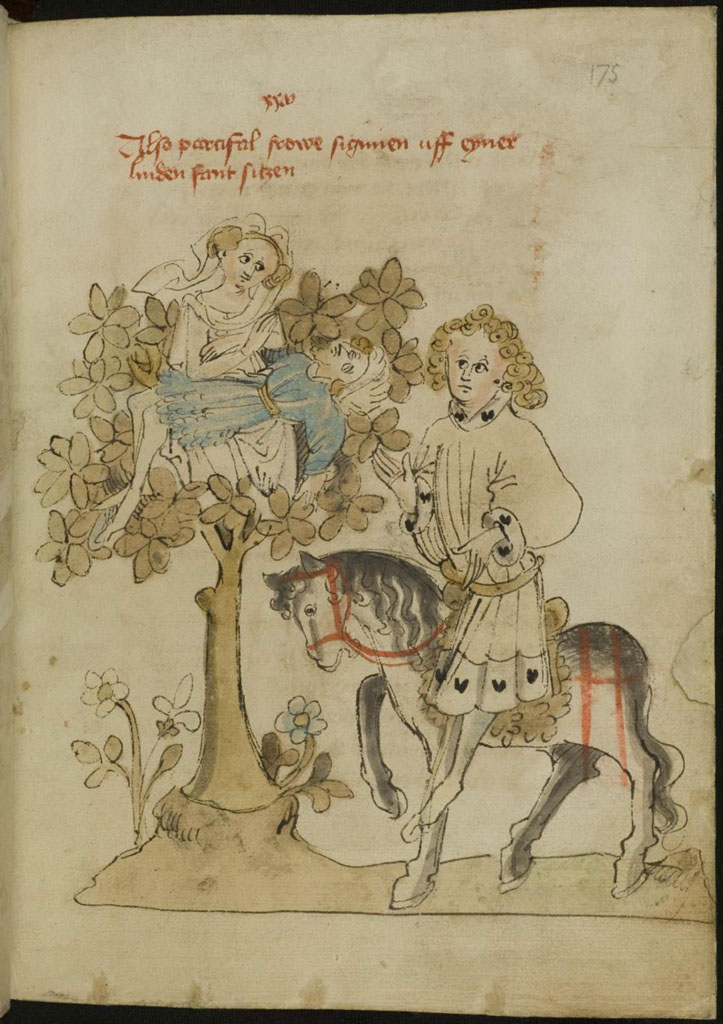 175
xxv
Also parcifal frowe sigunen uff eyner
linden fant sitzen